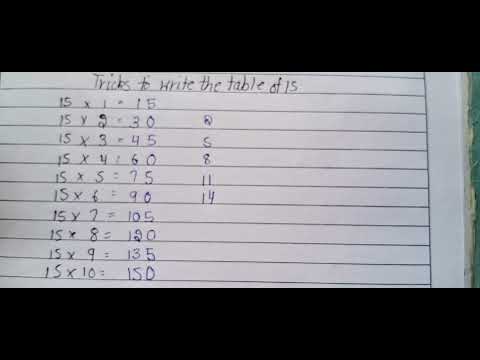 Tricks to write the table of 15
15 × 1 = 15
15 × 2 = 30 2
15 × 3 = 45 5
15 × 4 = 60 8
15 × 5 = 75 11
15 × 6 = 90 14
15 × 7 = 105
15 × 8 = 120
15 × 9 = 135
15 × 10 = 150